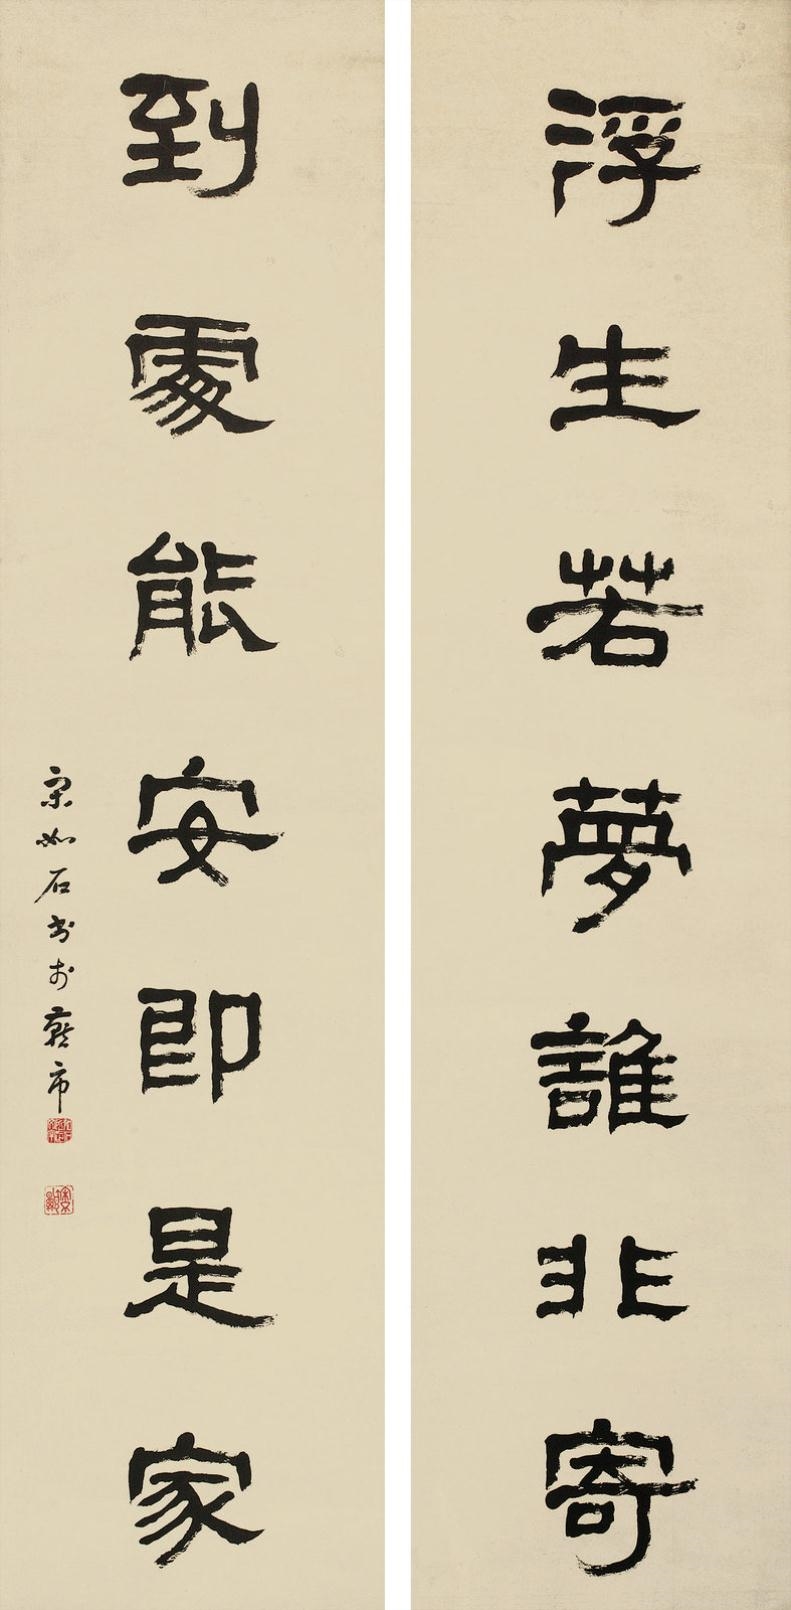 浮生若夢誰非寄
到處能安即是家
宋如石書於燕市